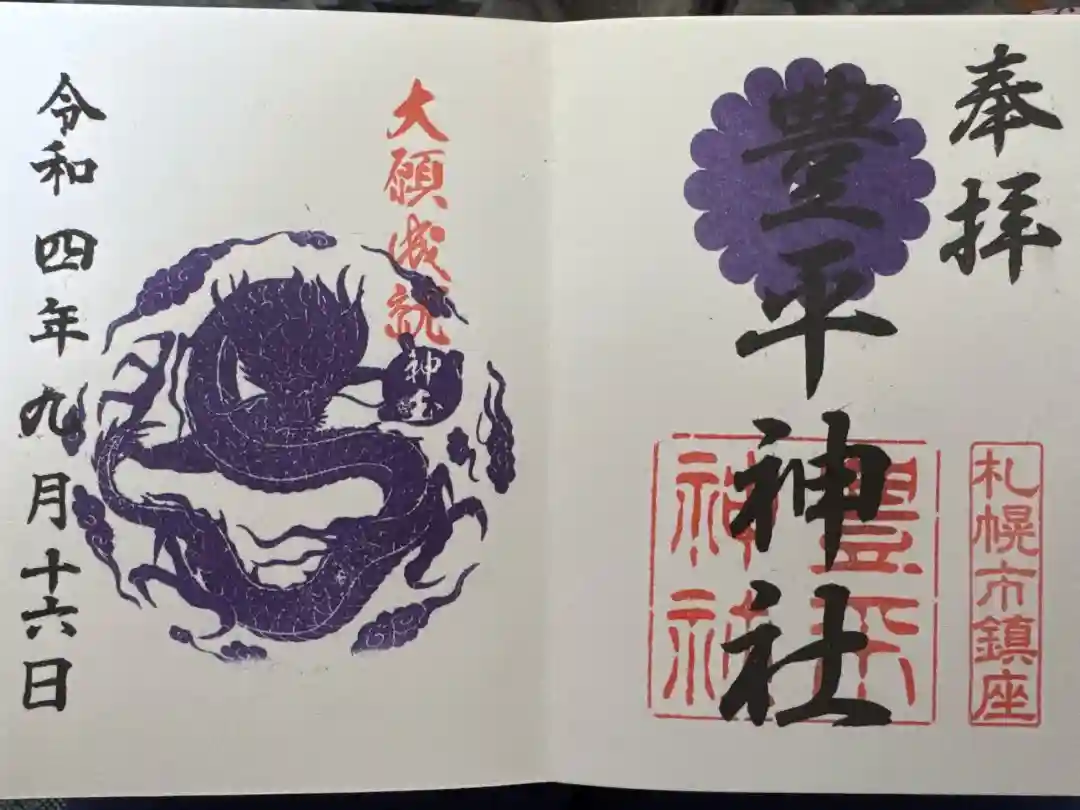 奉拝
豊平神社
豐平
神社
札幌市鎮座
大願成就
神玉
令和四年九月十六日